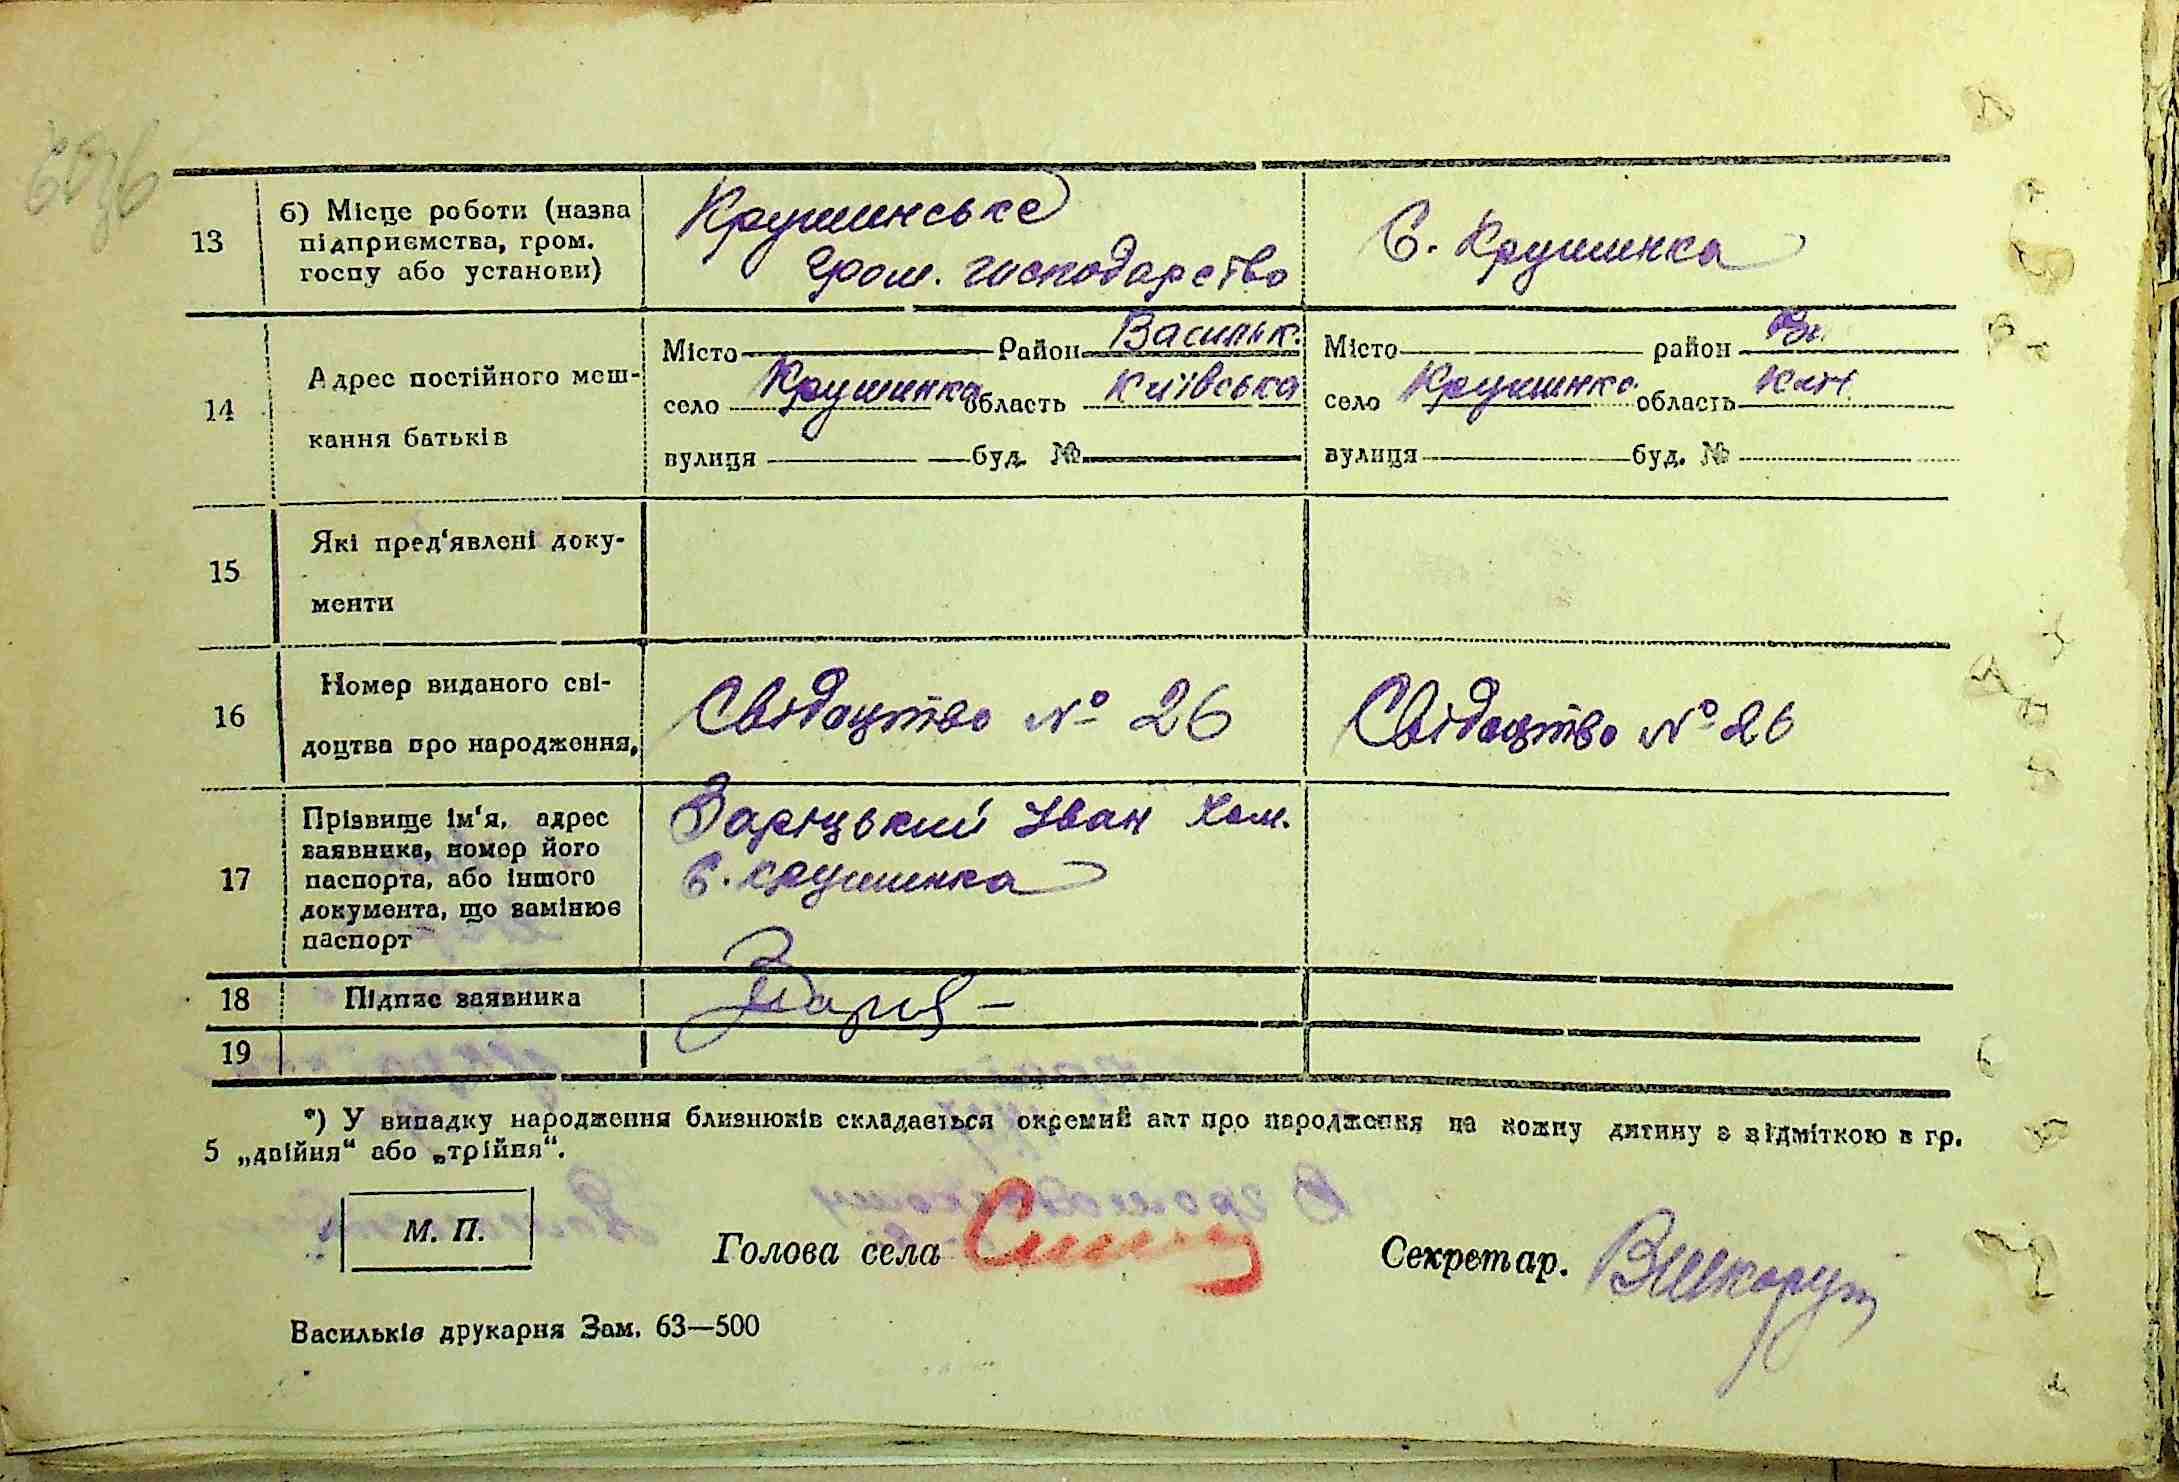 13
б) Місце роботи (назва
підприємства, гром.
госпу або установи)
Крушинське
Гром. господарство
С. Крушинка
14
Адрес постійного меш-
кання батьків
Місто Район Васильк.
село Крушинка область Київська
вулиця буд. №
Місто район
село Крушинка область Київ
вулиця буд. №
15
Які пред'явлені доку-
менти
16
Номер виданого сві-
доцтва про народження,
Свідоцтво № 26
Свідоцтво № 26
17
Прізвище ім'я, адрес
заявника, номер його
паспорта, або іншого
документа, що замінює
паспорт
Заріцький Іван Хом.
С. Крушинка
18
Підпис заявника
19
*) У випадку народження близнюків складається окремий акт про народження на кожну дитину з відміткою в гр.
5 „двійня“ або „трійня“.
М. П.
Голова села
Секретар.
Васильків друкарня Зам. 63—500